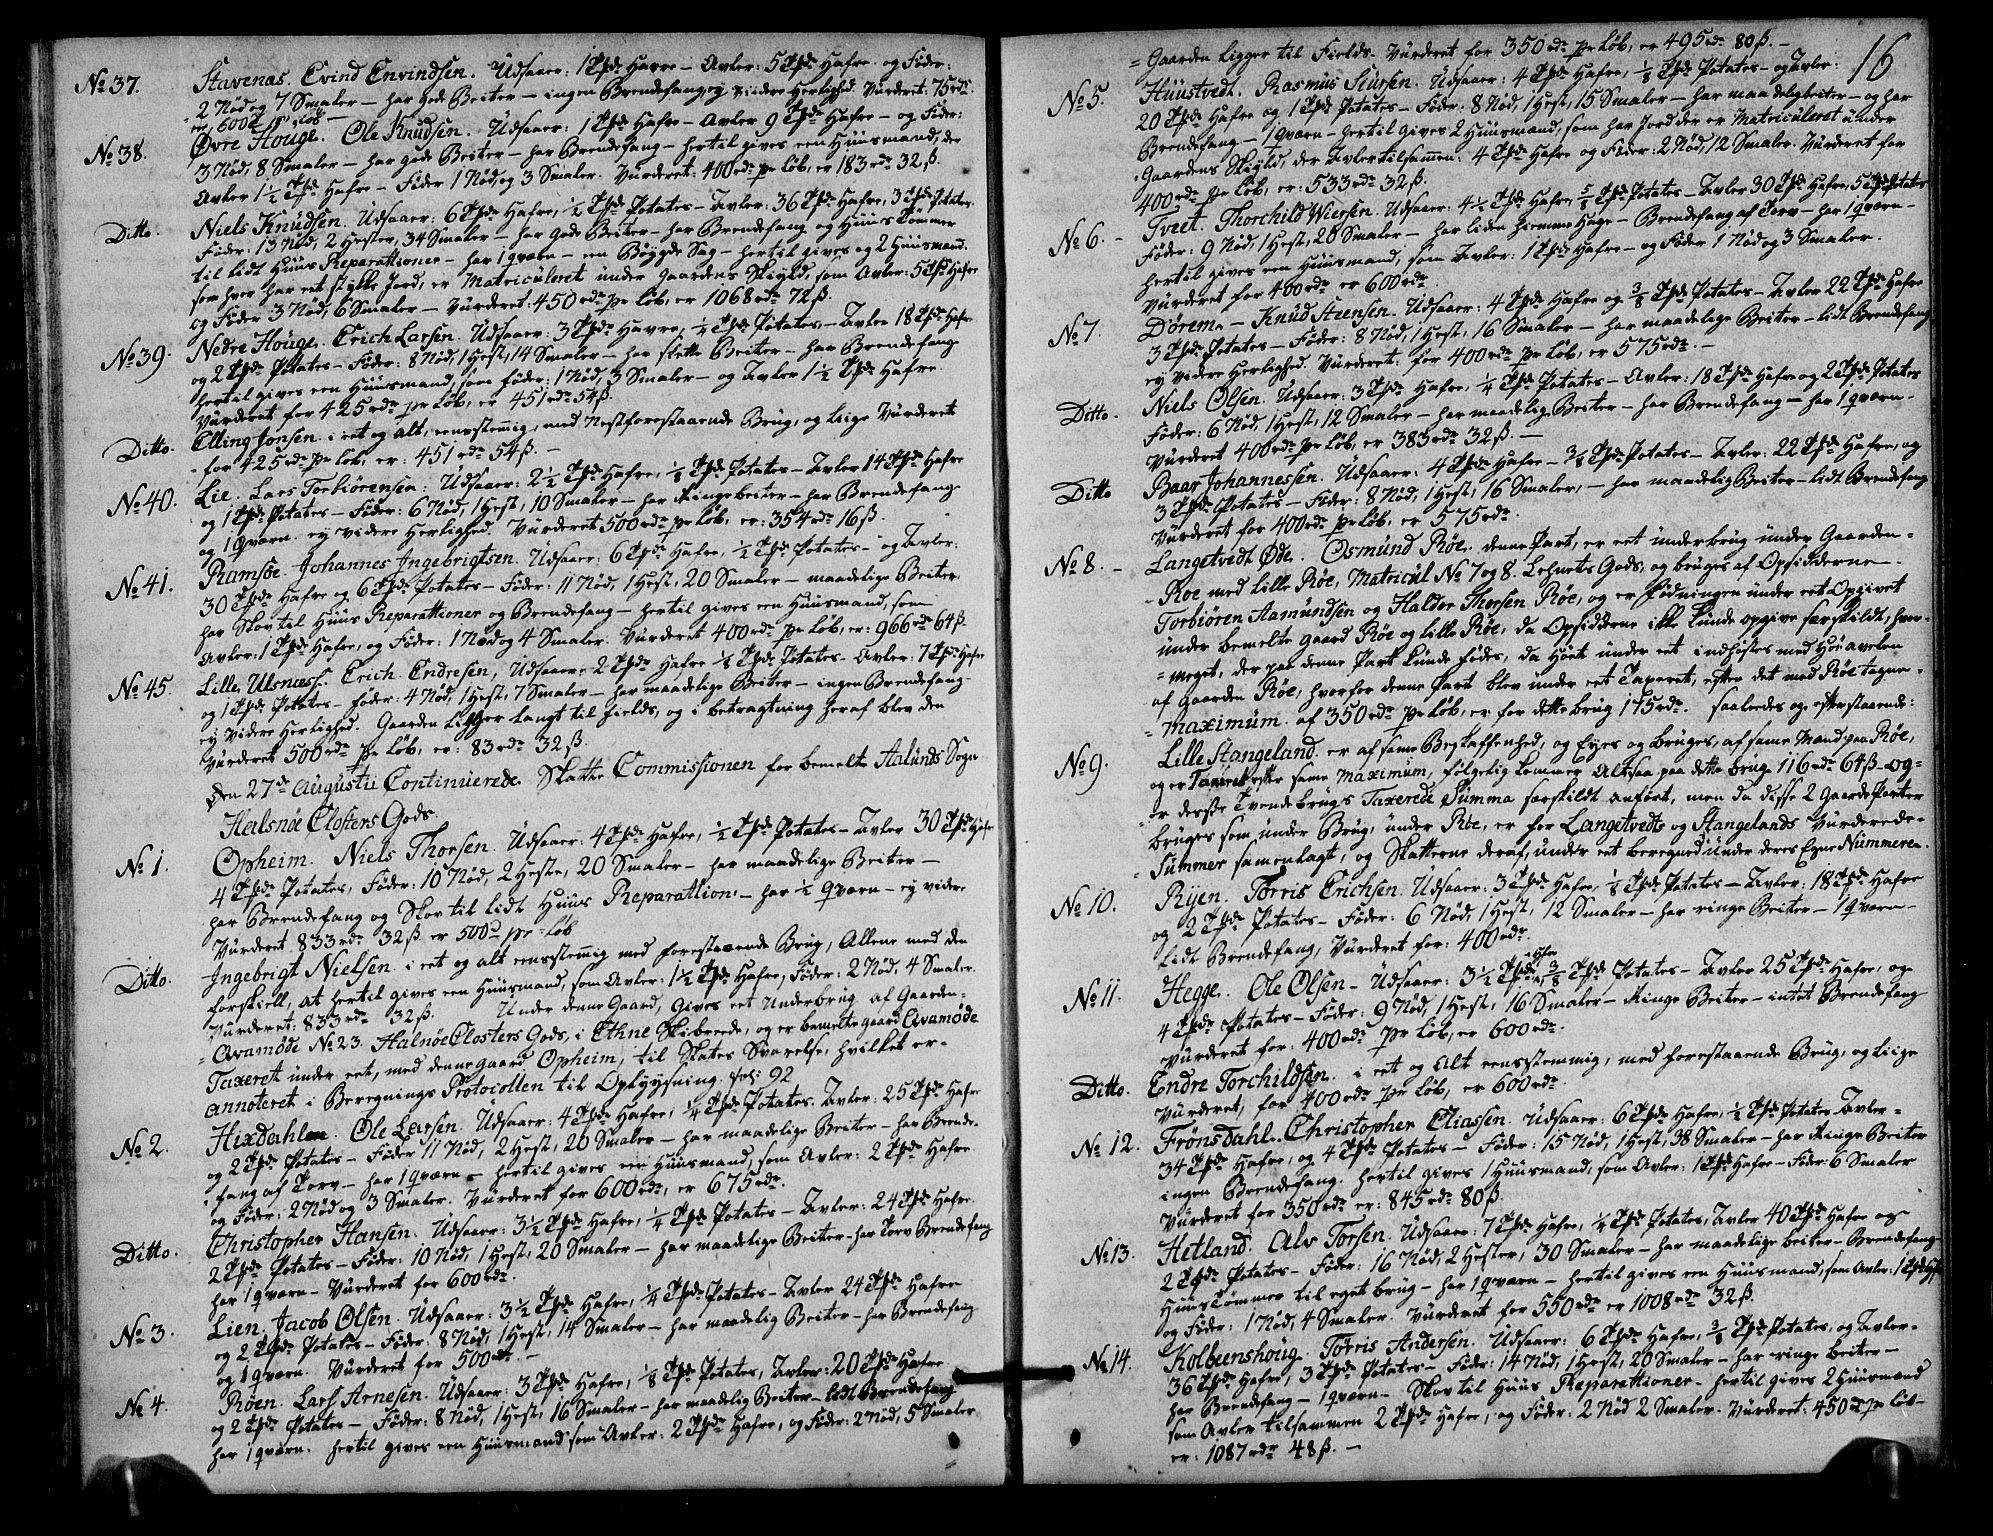 No 37. Stavenæs. Evind Envindsen. Udsaaer: 1 Tþdr Havre – Avler: 5 Tþdr Hafre og Föder:
2 Nød og 7 Smaler – har gode Beiter – ingen Brendefang, ey viidere Herlighed. Vürderet: 75 rdr.
er 600 d pr Løb –
No 38. Øvre Houge. Ole Knudsen. Udsaaer: 1 Tþdr Hafre – Avler 9 Tþdr Hafre – og Föder:
3 Nød, 8 Smaler – har gode Beiter – har Brendefang – hertil gives een Huusmand, der
Avler 1½ Tþdr Hafre – Föder 1 Nød, og 3 Smaler. Vürderet: 400 rdr pr Løb, er 183 rdr 32 ß.
Ditto. Niels Knudsen. Udsaaer: 6 Tþdr Hafre, ½ Tþdr Potates – Avler: 36 Tþdr Hafre, 3 Tþdr Potates
Föder: 13 Nød, 2 Hester, 34 Smaler – har gode Beiter – har Brendefang og Huus Tømmer
til lidt Huus Reparationer – har 1 qværn – en Böygde Sag – hertil gives og 2 Huusmænd.
som hver har eet stykke Jord, er Matriculeret under Gaardens Skyld, som Avler: 5 Tþdr Hafre
og Föder 3 Nød, 6 Smaler – Vürderet: 450 rdr pr Løb, er 1068 rdr 72 ß.
No 39. Nedre Houge. Erich Larsen. Udsaaer: 3 Tþdr Havre, ¼ Tþdr Potates – Avler 18 Tþdr Hafre
og 2 Tþdr Potates – Föder: 8 Nød, 1 Hest, 14 Smaler – har slette Beiter – har Brendefang
hertil gives een Huusmand, som föder: 1 Nød, 3 Smaler – og Avler 1½ Tþdr Hafre
Vürderet for 425 rdr pr Løb, er 451 rdr 54 ß.
Ditto. Elling Jonsen. i eet og alt, eensstemig, med Nestforestaaende Brug, og Liige Vürderet
for 425 rdr pr Løb, er: 451 rdr 54 ß. –
No 40. Lie. Lars Torbiörensen. Udsaaer: 2½ Tþdr Hafre, ⅛ Tþdr Potates – Avler 14 Tþdr Hafre
og 1 Tþdr Potates – Föder: 6 Nød, 1 Hest, 10 Smaler – har Ringe beiter – har Brendefang
og 1 qværn. ey Videre Herlighed. Vürderet 500 rdr pr Løb, er: 354 rdr 16 ß.
No 41. Ramsøe. Johannes Ingebrigtsen. Udsaaer: 6 Tþdr Hafre, ½ Tþdr Potates – og Avler:
30 Tþdr Hafre og 6 Tþdr Potates – Föder: 11 Nød, 1 Hest, 20 Smaler – maadelige Beiter
har Skov til Huus Reparationer og Brendefang – hertil gives een Huusmand, som
Avler: 1 Tþdr Hafre, og Föder: 1 Nød og 4 Smaler. Vürderet 400 rdr pr Løb, er: 966 rdr 64 ß.
No 45. Lille Ulsnæss. Erich Endresen, Udsaaer: 2 Tþdr Hafre ⅛ Tþdr Potates – Avler: 7 Tþdr Hafre
og 1 Tþdr Potates – föder: 4 Nød, 1 Hest, 7 Smaler – har maadelige Beiter – ingen Brendefang
ey Videre Herlighed. Gaarden Ligger Langt til Fields, og i betragtning heraf blev den
Vürderet 500 rdr pr Løb, er: 83 rdr 32 ß.
Den 27de Augustii Continuerede Skatte Commissionen for bemelte Aalunds Sogn
Halsnøe Closters Gods.
No 1. Opheim. Niels Thorsen. Udsaaer: 4 Tþdr Hafre, ½ Tþdr Potates – Avler 30 Tþdr Hafre
4 Tþdr Potates, Föder: 10 Nød, 2 Hester, 20 Smaler – har maadelige Beiter –
har Brendefang og Skov til lidt Huus Reparation – har ½ qværn – ey videre
Vürderet 833 rdr 32 ß er 500 d pr Løb
Ditto. Ingebrigt Nielsen. i eet og alt eensstemig med forestaaende Brug, Allene med den
forskiell, at hertil gives een Huusmand, som Avler: 1½ Tþdr Hafre, Föder: 2 Nød, 4 Smaler.
Vürderet: 833 rdr 32 ß. Under denne Gaard, Gives eet Underbrug af Gaarden
Qvamøde No 23. Halnøe Closters Gods, i Ethne Skibrede, og er bemelte gaard Qvamøde
Taxeret under eet, med denne gaard Opheim, til Skates Svarelse, hvilket er
annoteret i Beregnings Protocollen til Oplyysning. fol: 92
No 2. Hixdahlen. Ole Larsen. Udsaaer: 4 Tþdr Hafre, ¼ Tþdr Potates. Avler: 25 Tþdr Hafre
og 2 Tþdr Potates – Föder 11 Nød, 2 Hest, 20 Smaler – har maadelige Beiter – har Brende-
fang af Torv – har 1 qværn – hertil gives een Huusmand, som Avler: 2 Tþdr Hafre
og Föder: 2 Nød og 3 Smaler. Vürderet for 600 rdr, er 675 rdr.
Ditto. Christopher Hansen. Udsaaer: 3½ Tþdr Hafre, ¼ Tþdr Potates – Avler: 24 Tþdr Hafre
2 Tþdr Potates – Föder: 10 Nød, 1 Hest, 20 Smaler – har maadelige Beiter – har Torv Brendefang
har 1 qværn – Vürderet for 600 rdr.
No 3. Lien. Jacob Olsen. Udsaaer: 3½ Tþdr Hafre, ¼ Tþdr Potates – Avler 24 Tþdr Hafre
og 2 Tþdr Potates – Föder 8 Nød, 1 Hest, 14 Smaler – har maadelig Beiter – har Brendefang
og 1 qværn. Vürderet for 500 rdr. –
No 4. Røen. Lars Arnesen. Udsaaer: 3 Tþdr Hafre, ⅛ Tþdr Potates, Avler: 20 Tþdr Hafre
og 2 Tþdr Potates – Föder: 8 Nød, 1 Hest, 16 Smaler – har maadelig Beiter – lidt Brendefang
har 1 qværn. hertil gives een Huusmand som Avler: 2 Tþdr Hafre, og Föder: 2 Nød, 5 Smaler
16
Gaarden Ligger til Fields – Vürderet for 350 rdr pr Løb, er 495 dr 80 ß. –
No 5. Huustvedt. Rasmus Siursen. Udsaaer: 4 Tþdr Hafre, ⅛ Tþdr Potates – og Avler:
20 Tþdr Hafre og 1 Tþdr Potates – Föder: 8 Nød, 1 Hest, 15 Smaler – har maadelig beiter – og har
Brendefang – 1 qværn – hertil gives 2 Huusmænd, som har Jord der er Matriculeret under
Gaardens Skyld, der Avler tilsammen: 4 Tþdr Hafre og Föder: 2 Nød, 12 Smaler. Vürderet for
400 rdr pr Løb, er: 533 rdr 32 ß.
No 6. – Tvet. Thorchild Wiersen. Udsaaer: 4½ Tþdr Hafre, ⅝ Tþdr Potates – Avler 30 Tþdr Hafre, 5 Tþdr Potates
Föder: 9 Nød, 1 Hest, 20 Smaler – har liden hiemme Hage – Brendefang af Torv – har 1 qværn –
hertil gives een Huusmand, som Avler: 1 Tþdr Hafre – og Föder 1 Nød og 3 Smaler.
Vürderet for 400 rdr er 600 rdr.
No 7. Dørem. – Knud Steensen. Udsaaer: 4 Tþdr Hafre og ⅜ Tþdr Potates – Avler 22 Tþdr Hafre
3 Tþdr Potates – Föder: 8 Nød, 1 Hest, 16 Smaler – har maadelige Beiter – lidt Brendefang
ey Videre Herlighed. Vürderet: for 400 rdr pr Løb, er 575 rdr. –
Ditto. Niels Olsen. Udsaaer: 3 Tþdr Hafre, ¼ Tþdr Potates – Avler: 18 Tþdr Hafre og 2 Tþdr Potates
Föder: 6 Nød, 1 Hest, 12 Smaler – har maadelig Beiter – har Brendefang – har 1 qværn –
Vürderet 400 rdr pr Løb, er 383 rdr 32 ß. –
Ditto Baar Johannesen. Udsaaer: 4 Tþdr Hafre – ⅜ Tþdr Potates – Avler: 22 Tþdr Hafre, og
3 Tþdr Potates – Föder: 8 Nød, 1 Hest, 16 Smaler, – har maadelig Beiter – lidt Brendefang
Vürderet for 400 rdr pr Løb, er 575 rdr.
No 8. – Langetvedt Øde. Osmund Røe. denne Part, er eet underbrug under Gaarden –
Røe med Lille Røe, Matricul No 7 og 8. Lehnets Gods, og bruges af Opsidderne –
Torbiören Aamundsen og Haldor Thorsen Røe, og er Födningen under eet Opgivet
under bemelte gaard Røe og Lille Røe, da Opsidderne ikke kunde opgive særskildt, hvor-
meget, der paa denne Part kunde födes, da Höet under eet indhøstes med Höeavelen
af gaarden Røe, hvorfor denne Part blev under eet Taxeret, efter det med Røe tagne
Maximum af 350 rdr pr Løb, er for dette brug 175 rdr. saaledes og efterstaaende:
No 9. Lille Stangeland. er af samme Beskaffenhed, og Eyes og bruges, af samme Mand paa Røe,
og er Taxeret efter samme Maximum, følgelig kommer Altsaa paa dette brug 116 rdr 64 ß – og
er disse Tvende brugs Taxerede Summa særskildt anfört, men da disse 2 Gaarde Parter
bruges som under Brug, under Røe, er for Langetvedts og Stangelands Vürderede
Summer samenlagt, og Skatterne deraf, under eet beregned under deres Egne Nummere.
No 10. Rijen. Torris Erichsen. Udsaaer: 3 Tþdr Hafre, ¼ Tþdr Potates – Avler: 18 Tþdr Hafre
og 2 Tþdr Potates – Föder: 6 Nød, 1 Hest, 12 Smaler – har ringe Beiter – 1 qværn –
Lidt Brendefang, Vürderet for: 400 rdr.
No 11. Hegge. Ole Olsen – Udsaaer: 3½ Tþdr Hafre, ⅜ Tþdr Potates – Avler 25 Tþdr Hafre, og
4 Tþdr Potates – Föder: 9 Nød, 1 Hest, 16 Smaler – Ringe Beiter – intet Brendefang
Vürderet for: 400 rdr pr Løb, er 600 rdr.
Ditto. Endre Torchildsen. i eet og Alt eensstemmig, med forestaaende Brug, og Liige
Vürderet, for 400 rdr pr Løb, er 600 rdr.
No 12. Frönsdahl. Christopher Eliassen. Udsaaer: 6 Tþdr Hafre, ½ Tþdr Potates Avler –
34 Tþdr Hafre, og 4 Tþdr Potates – Föder: 15 Nød, 1 Hest, 38 Smaler – har Ringe Beiter
ingen Brendefang. hertil gives 1 Huusmand, som Avler: 1 Tþdr Hafre – Föder 6 Smaler
Vürderet for 350 rdr er: 845 rdr 80 ß.
No 13. Hetland. Alv Torsen. Udsaaer: 7 Tþdr Hafre, ¼ Tþdr Potates, Avler 40 Tþdr Hafre og
2 Tþdr Potates – Föder: 16 Nød, 2 Hester, 30 Smaler – har maadelige beiter – Brendefang
Huus Tømmer til eget brug – har 1 qværn – hertil gives een Huusmand, som Avler: 1 Tþdr Hafre
og Föder: 1 Nød, 4 Smaler. Vürderet for 550 rdr er 1008 rdr 32 ß.
No 14. Kolbeenshoug. Törris Andersen. Udsaaer: 6 Tþdr Hafre, ⅜ Tþdr Potates, og Avler –
36 Tþdr Hafre, 3 Tþdr Potates – Föder: 14 Nød, 1 Hest, 20 Smaler – har ringe beiter –
har Brendefang – 1 qværn – Skov til Huus Reparationer – hertil gives 2 Huusmænd
som Avler tilsammen 2 Tþdr Hafre, og Föder: 2 Nød 2 Smaler. Vürderet: 450 dr pr Løb –
er: 1087 rdr 48 ß. –